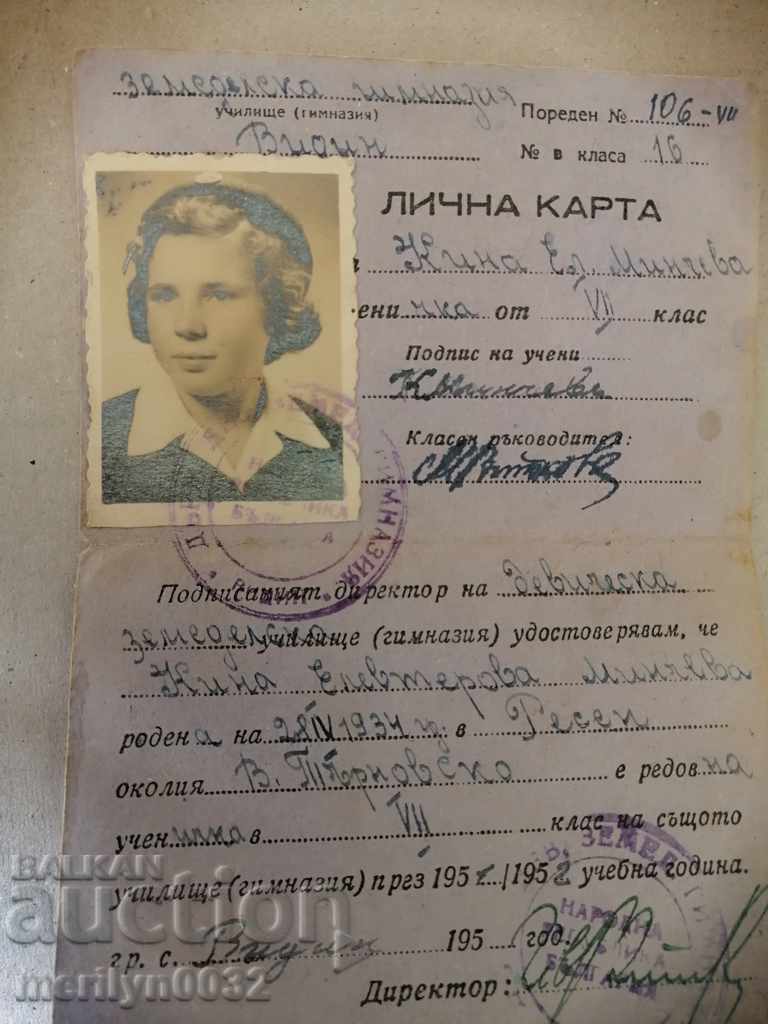 земеделска гимназия
училище (гимназия) Пореден № 106-VII
Видин № в класа 16
ЛИЧНА КАРТА
Кина Ел. Минчева
ничка от VII клас
Подпис на учени
КМинчева
Класен ръководител:
Подписаният директор на девическа
земеделска училище (гимназия) удостоверявам, че
Кина Елевтерова Минчева
родена на 28 IV 1934 г. в Ресен
околия В. Търновско е редовна
ученичка в VII клас на същото
училище (гимназия) през 1951/1952 учебна година.
гр. с. Видин 195 год.
Директор:
ЗЕМЕД
ГИМНАЗИЯ
НАРОДНА
БЪЛГАРИЯ
BALKAN
auction
merilyn0032